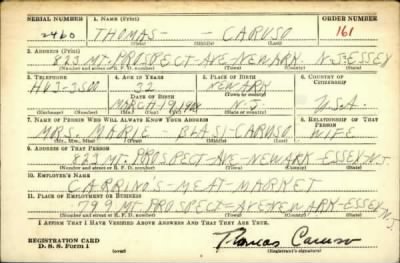 SERIAL NUMBER 1. NAME (Print) ORDER NUMBER
2460 THOMAS - - CARUSO 161
(First) (Middle) (Last)
2. ADDRESS (Print)
823 MT. PROSPECT-AVE-NEWARK. N.J-ESSEX
(Number and street or R. F. D. number) (Town) (County) (State)
3. TELEPHONE 4. AGE IN YEARS 5. PLACE OF BIRTH 6. COUNTRY OF CITIZENSHIP
HU3-3500 32 NEWARK
DATE OF BIRTH (Town or county)
MARCH-19-1908 N-J. U.S.A.
(Exchange) (Number) (Mo.) (Day) (Yr.) (State or country)
7. NAME OF PERSON WHO WILL ALWAYS KNOW YOUR ADDRESS 8. RELATIONSHIP OF THAT PERSON
MRS. MARIE BLASI-CARUSO WIFE
(Mr., Mrs., Miss) (First) (Middle) (Last)
9. ADDRESS OF THAT PERSON
823 MT. PROSPECT-AVE-NEWARK-ESSEX N.J.
(Number and street or R. F. D. number) (Town) (County) (State)
10. EMPLOYER'S NAME
CARRINO'S-MEAT-MARKET
11. PLACE OF EMPLOYMENT OR BUSINESS
799 MT-PROSPECT-AVE NEWARK-ESSEX N.J.
(Number and street or R. F. D. number) (Town) (County) (State)
I AFFIRM THAT I HAVE VERIFIED ABOVE ANSWERS AND THAT THEY ARE TRUE.
REGISTRATION CARD
D. S. S. Form 1 (over) Thomas Caruso
(Registrant's signature)